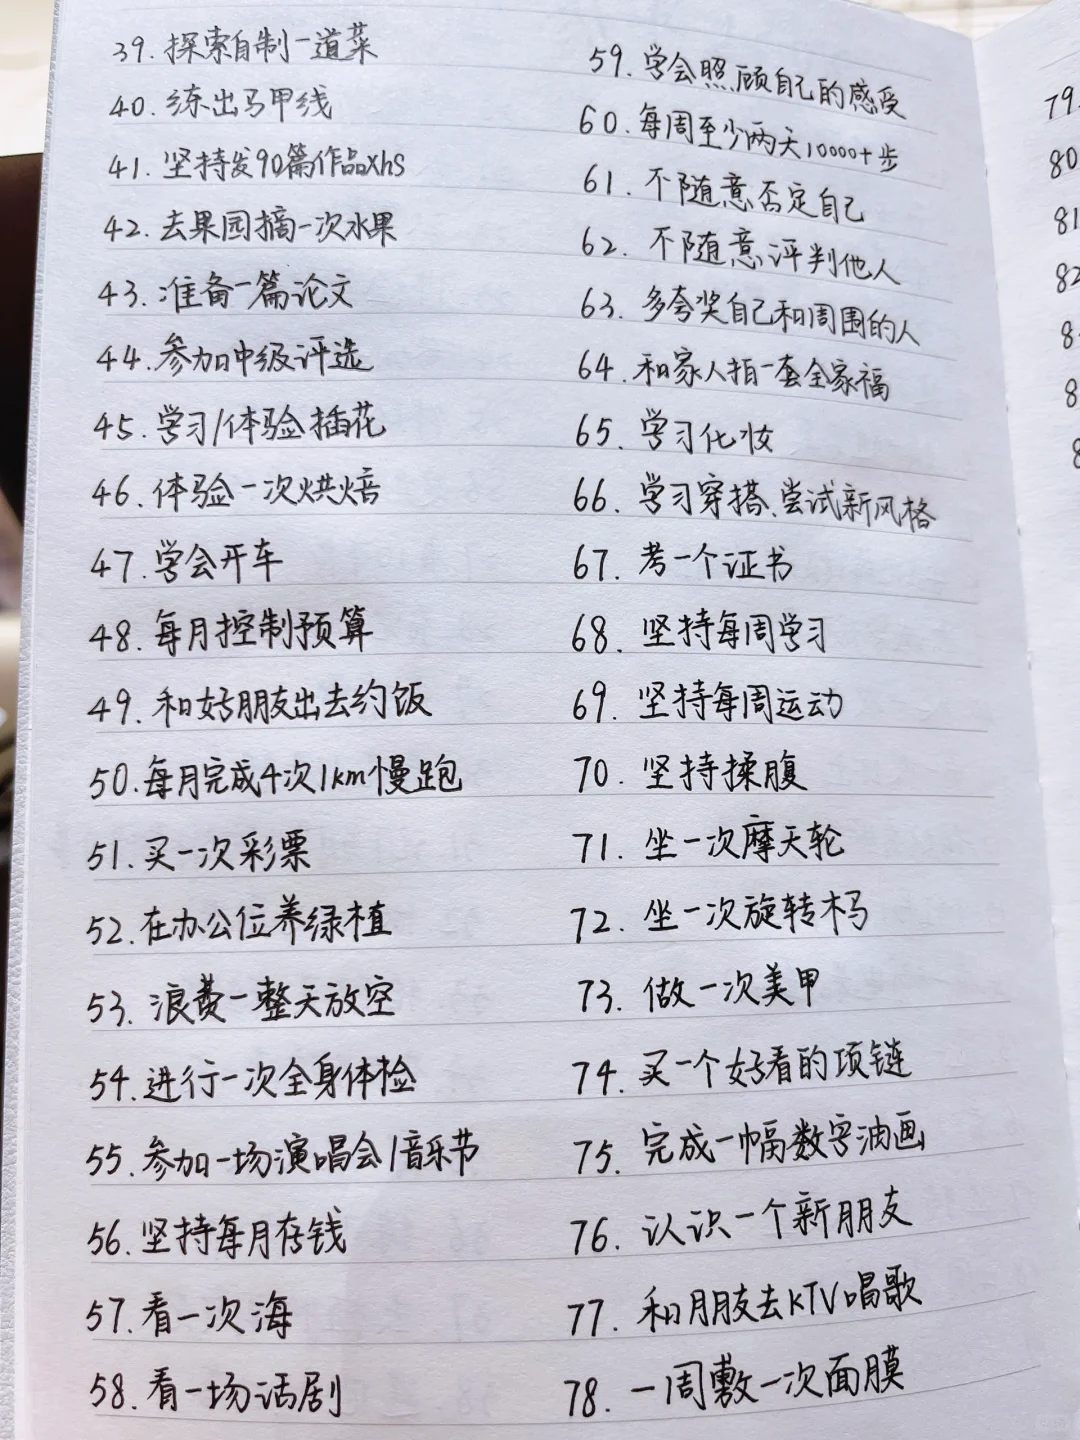 39. 探索自制一道菜
40. 练出马甲线
41. 坚持发90篇作品xhs
42. 去果园摘一次水果
43. 准备一篇论文
44. 参加中级评选
45. 学习/体验插花
46. 体验一次烘焙
47. 学会开车
48. 每月控制预算
49. 和好朋友出去约饭
50. 每月完成4次1km慢跑
51. 买一次彩票
52. 在办公位养绿植
53. 浪费一整天放空
54. 进行一次全身体检
55. 参加一场演唱会/音乐节
56. 坚持每月存钱
57. 看一次海
58. 看一场话剧
59. 学会照顾自己的感受
60. 每周至少两天10000+步
61. 不随意否定自己
62. 不随意评判他人
63. 多夸奖自己和周围的人
64. 和家人拍一套全家福
65. 学习化妆
66. 学习穿搭、尝试新风格
67. 考一个证书
68. 坚持每周学习
69. 坚持每周运动
70. 坚持揉腹
71. 坐一次摩天轮
72. 坐一次旋转木马
73. 做一次美甲
74. 买一个好看的项链
75. 完成一幅数字油画
76. 认识一个新朋友
77. 和朋友去KTV唱歌
78. 一周敷一次面膜
79.
80
81
82
8
8
8